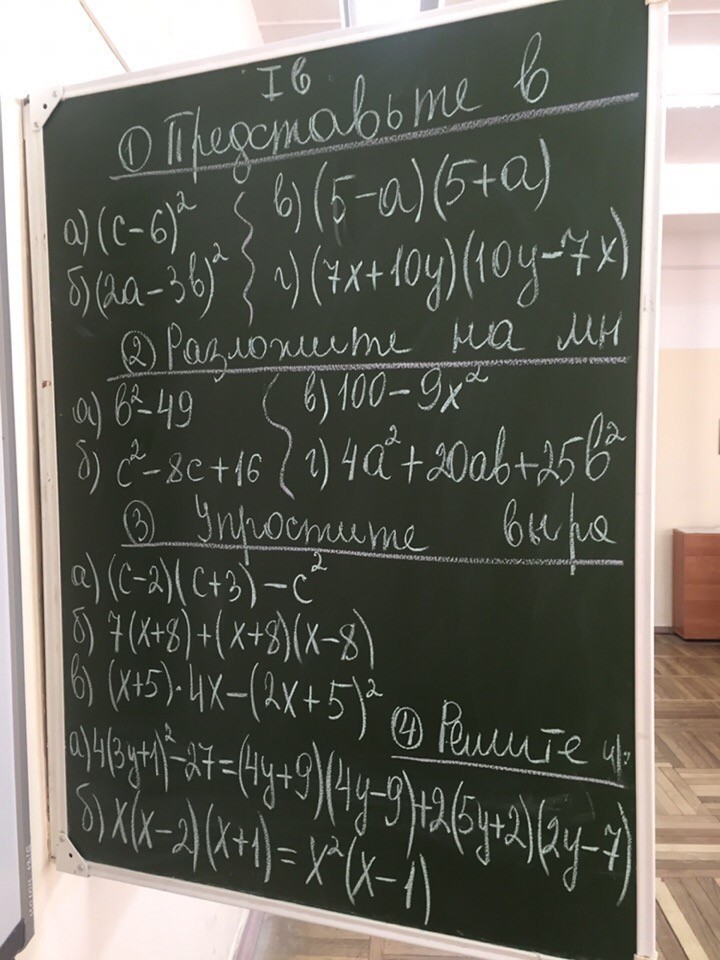 I в
① Представьте в
а) (c-6)² в) (5-a)(5+a)
б) (2a-3b)² г) (7x+10y)(10y-7x)
② Разложите на мн
а) b²-49 в) 100-9x²
б) c²-8c+16 г) 4a²+20ab+25b²
③ Упростите выра
а) (c-2)(c+3)-c²
б) 7(x+8)+(x+8)(x-8)
в) (x+5)·4x-(2x+5)²
④ Решите ур
а) 4(3y+1)²-27=(4y+9)(4y-9)+2(5y+2)(2y-7)
б) x(x-2)(x+1)=x²(x-1)